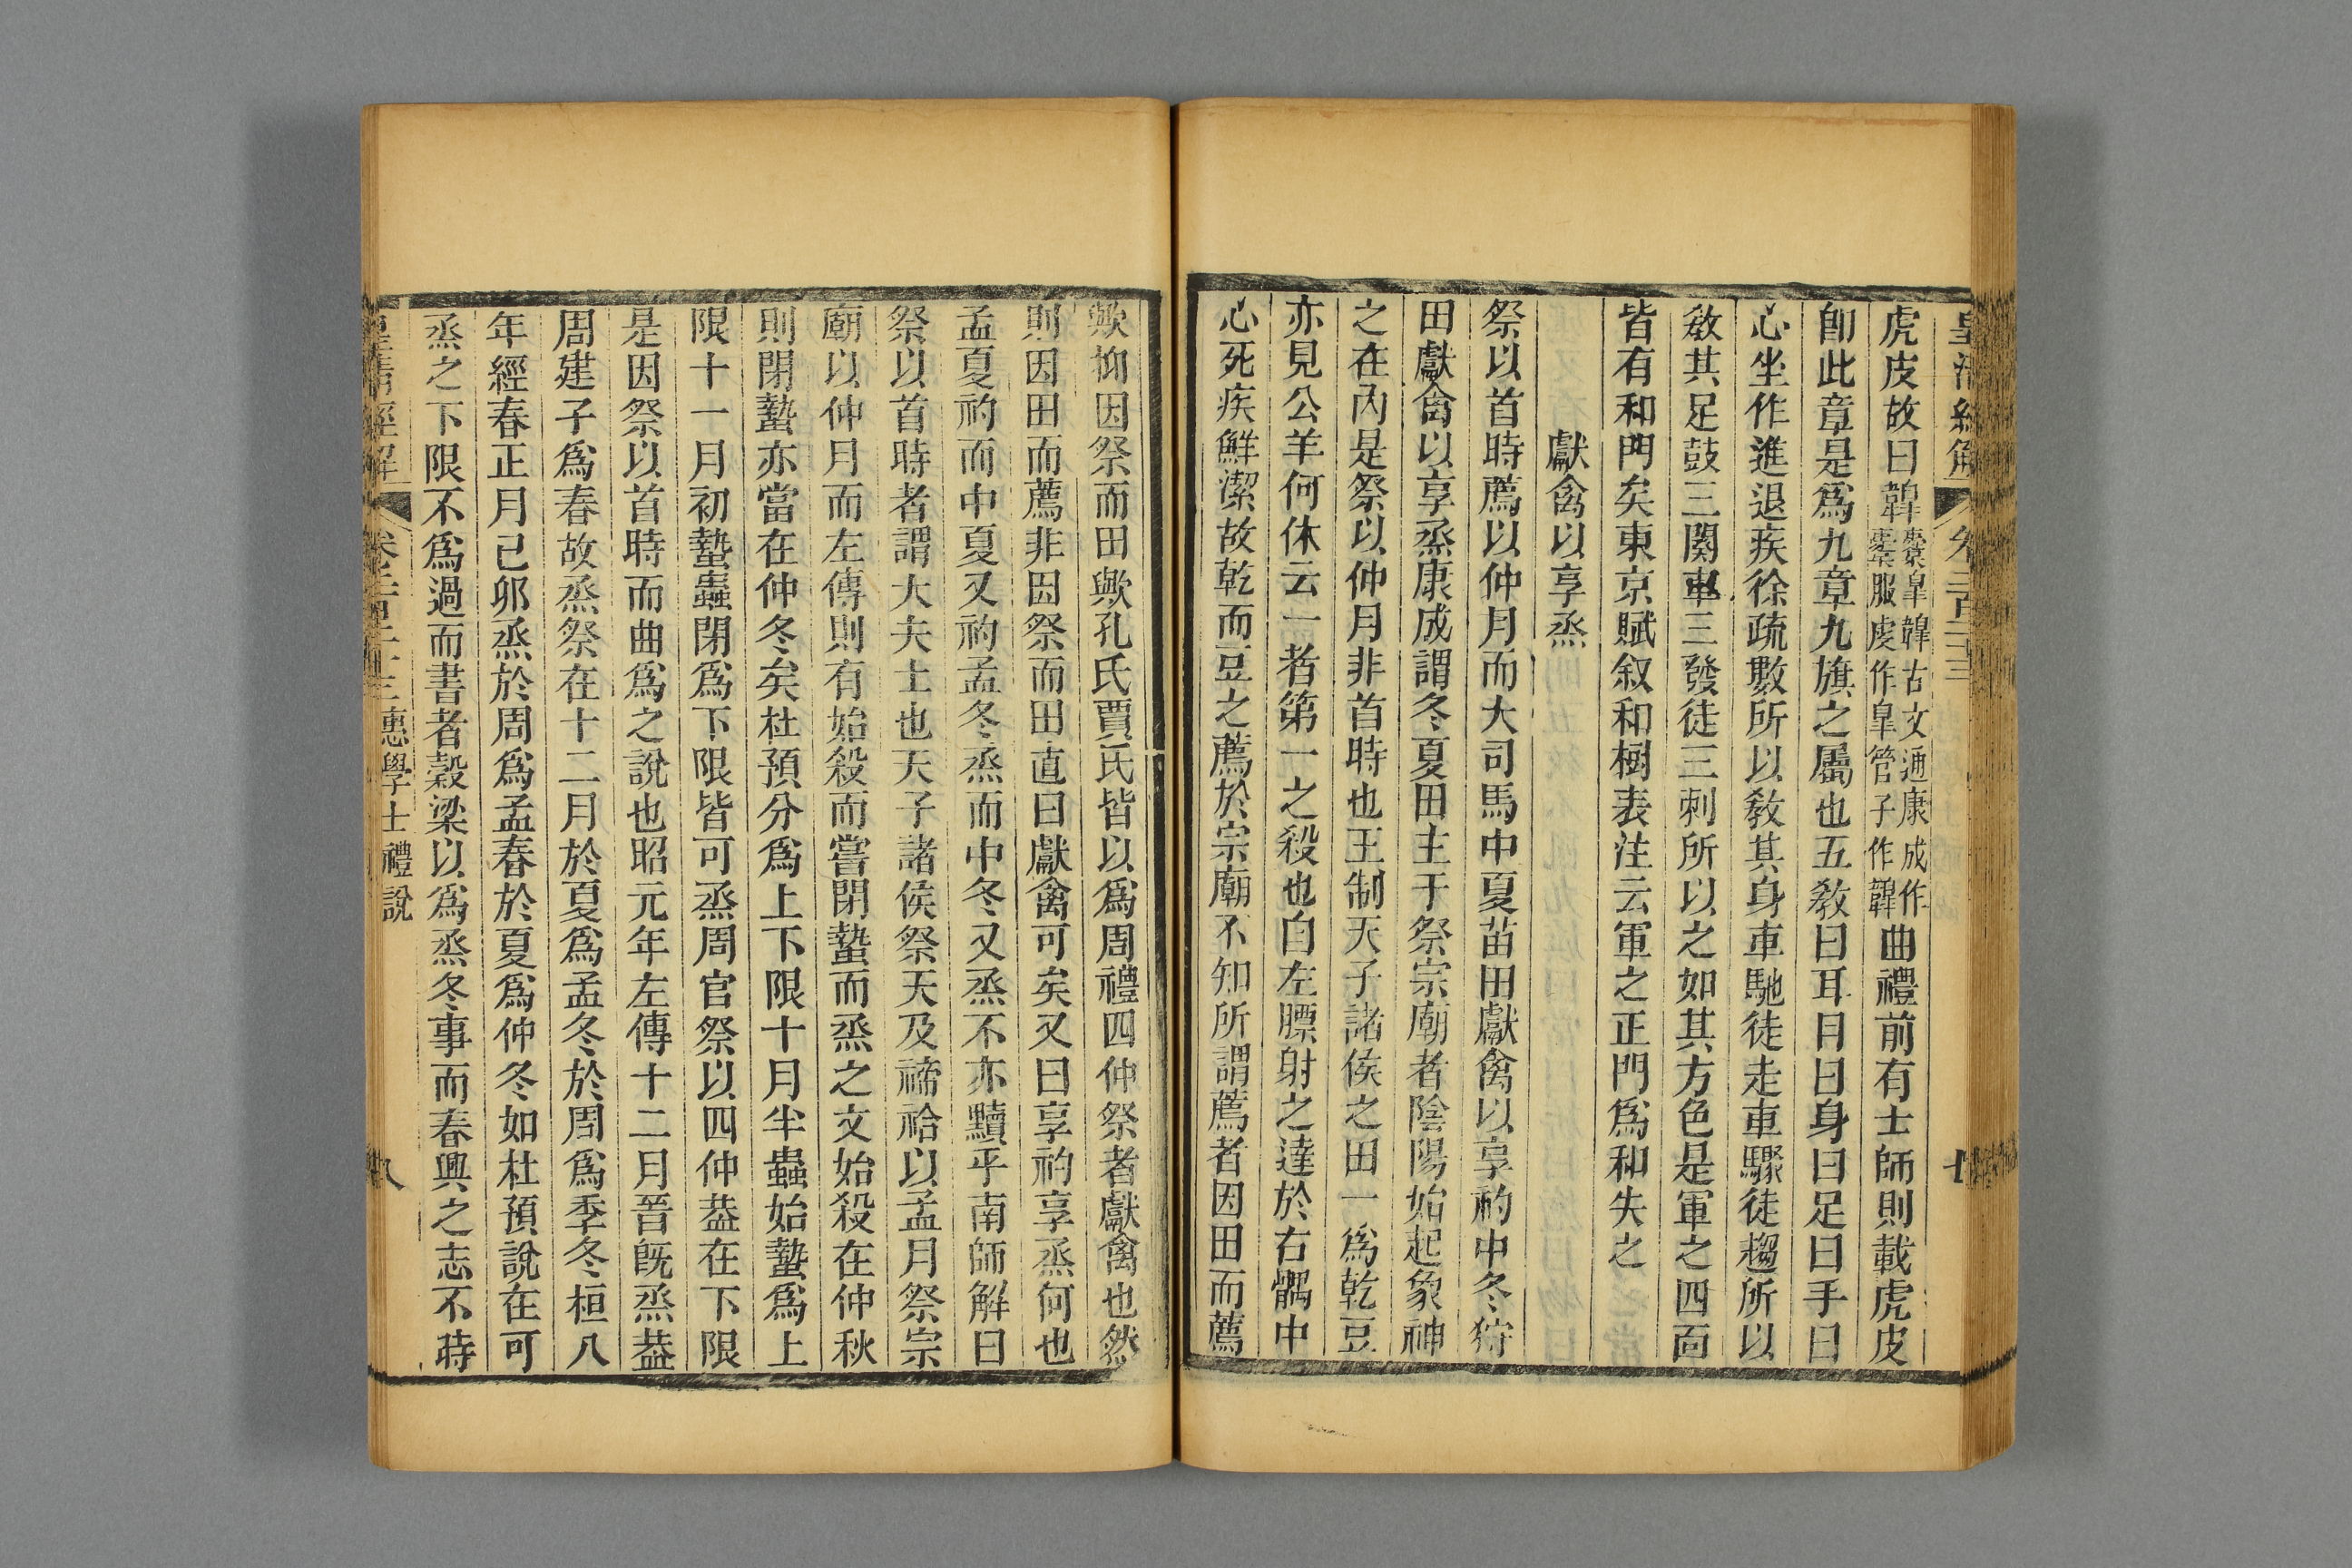 皇清經解 卷二百二十三
虎皮故曰韓櫜皐韓古文通康成作櫜服虔作皐管子作韓曲禮前有士師則載虎皮
卽此章是爲九章九旗之屬也五敎曰耳目曰身曰足曰手曰
心坐作進退疾徐疏數所以敎其身車馳徒走車驟徒趨所以
敎其足鼓三闋車三發徒三刺所以之如其方色是軍之四面
皆有和門矣東京賦叙和樹表注云軍之正門爲和失之
獻禽以享烝
祭以首時薦以仲月而大司馬中夏苗田獻禽以享礿中冬狩
田獻禽以享烝康成謂冬夏田主于祭宗廟者陰陽始起象神
之在內是祭以仲月非首時也王制天子諸侯之田一爲乾豆
亦見公羊何休云一者第一之殺也自左膘射之達於右髃中
心死疾鮮潔故乾而豆之薦於宗廟不知所謂薦者因田而薦
歟抑因祭而田歟孔氏賈氏皆以爲周禮四仲祭者獻禽也然
則因田而薦非因祭而田直曰獻禽可矣又曰享礿享烝何也
孟夏礿而中夏又礿孟冬烝而中冬又烝不亦黷乎南師解曰
祭以首時者謂大夫士也天子諸侯祭天及禘祫以孟月祭宗
廟以仲月而左傳則有始殺而嘗閉蟄而烝之文始殺在仲秋
則閉蟄亦當在仲冬矣杜預分爲上下限十月半蟲始蟄爲上
限十一月初蟄蟲閉爲下限皆可烝周官祭以四仲葢在下限
是因祭以首時而曲爲之說也昭元年左傳十二月晉旣烝葢
周建子爲春故烝祭在十二月於夏爲孟冬於周爲季冬桓八
年經春正月己卯烝於周爲孟春於夏爲仲冬如杜預說在可
烝之下限不爲過而書者穀梁以爲烝冬事而春興之志不時
皇清經解 卷二百二十三 惠學士禮說 八